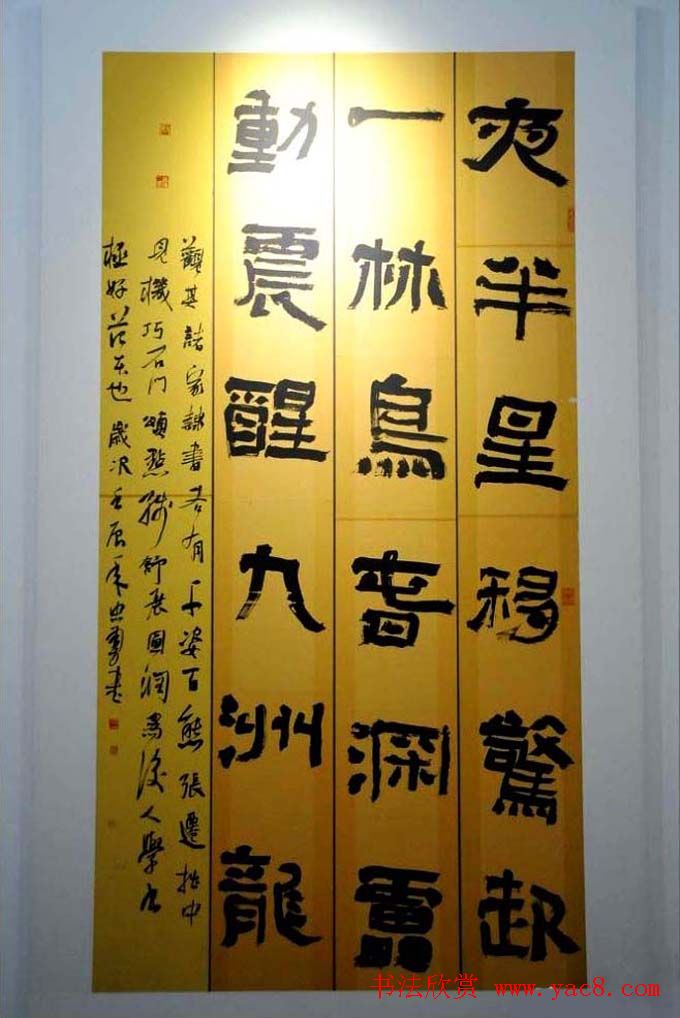 夜半星移驚起
一林鳥春深雷
動震醒九洲龍
觀其諸家隸書各有千姿百態張遷拙中
見機巧石門頌點線舒展圓潤為後人學書
極好范本也歲次壬辰書
书法欣赏 www.yac8.com